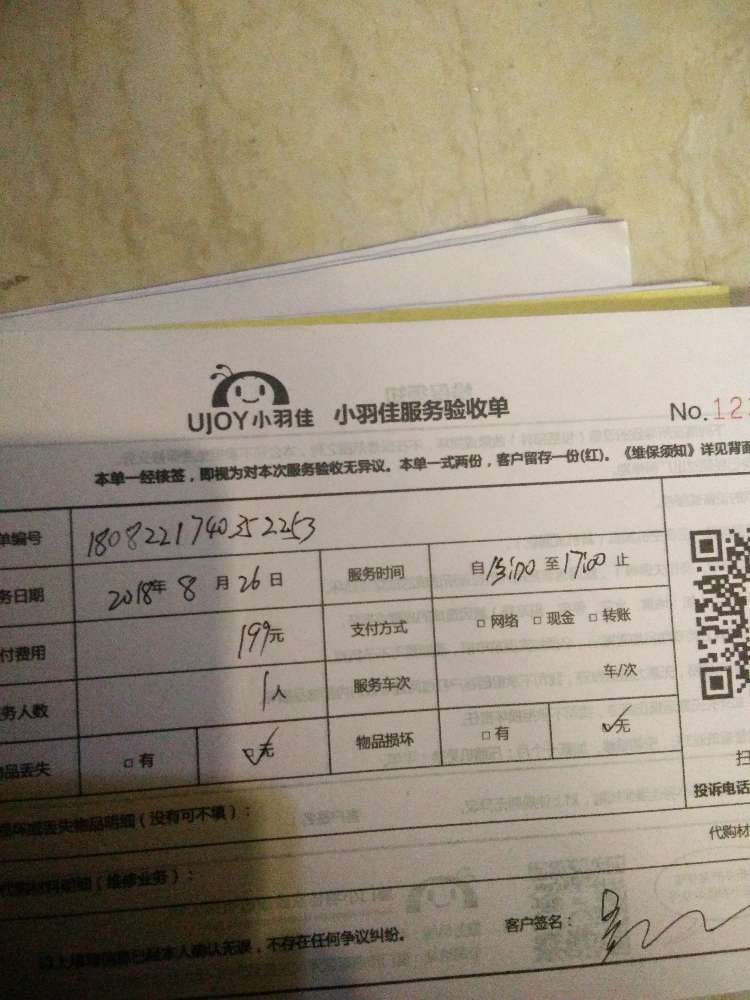 UJOY小羽佳 小羽佳服务验收单 No.12
本单一经核签，即视为对本次服务验收无异议。本单一式两份，客户留存一份(红)。《维保须知》详见背面
单编号 1808221740352253
务日期 2018年 8 月 26 日 服务时间 自 15:00 至 17:00 止
付费用 199元 支付方式 □ 网络 □ 现金 □ 转账
务人数 1人 服务车次 车/次
品丢失 □ 有 ☑ 无 物品损坏 □ 有 ☑ 无
扫
投诉电话
损坏或丢失物品明细（没有可不填）：
代购材
代购材料明细（维修业务）：
以上填写信息已经本人确认无误，不存在任何争议纠纷。 客户签名：